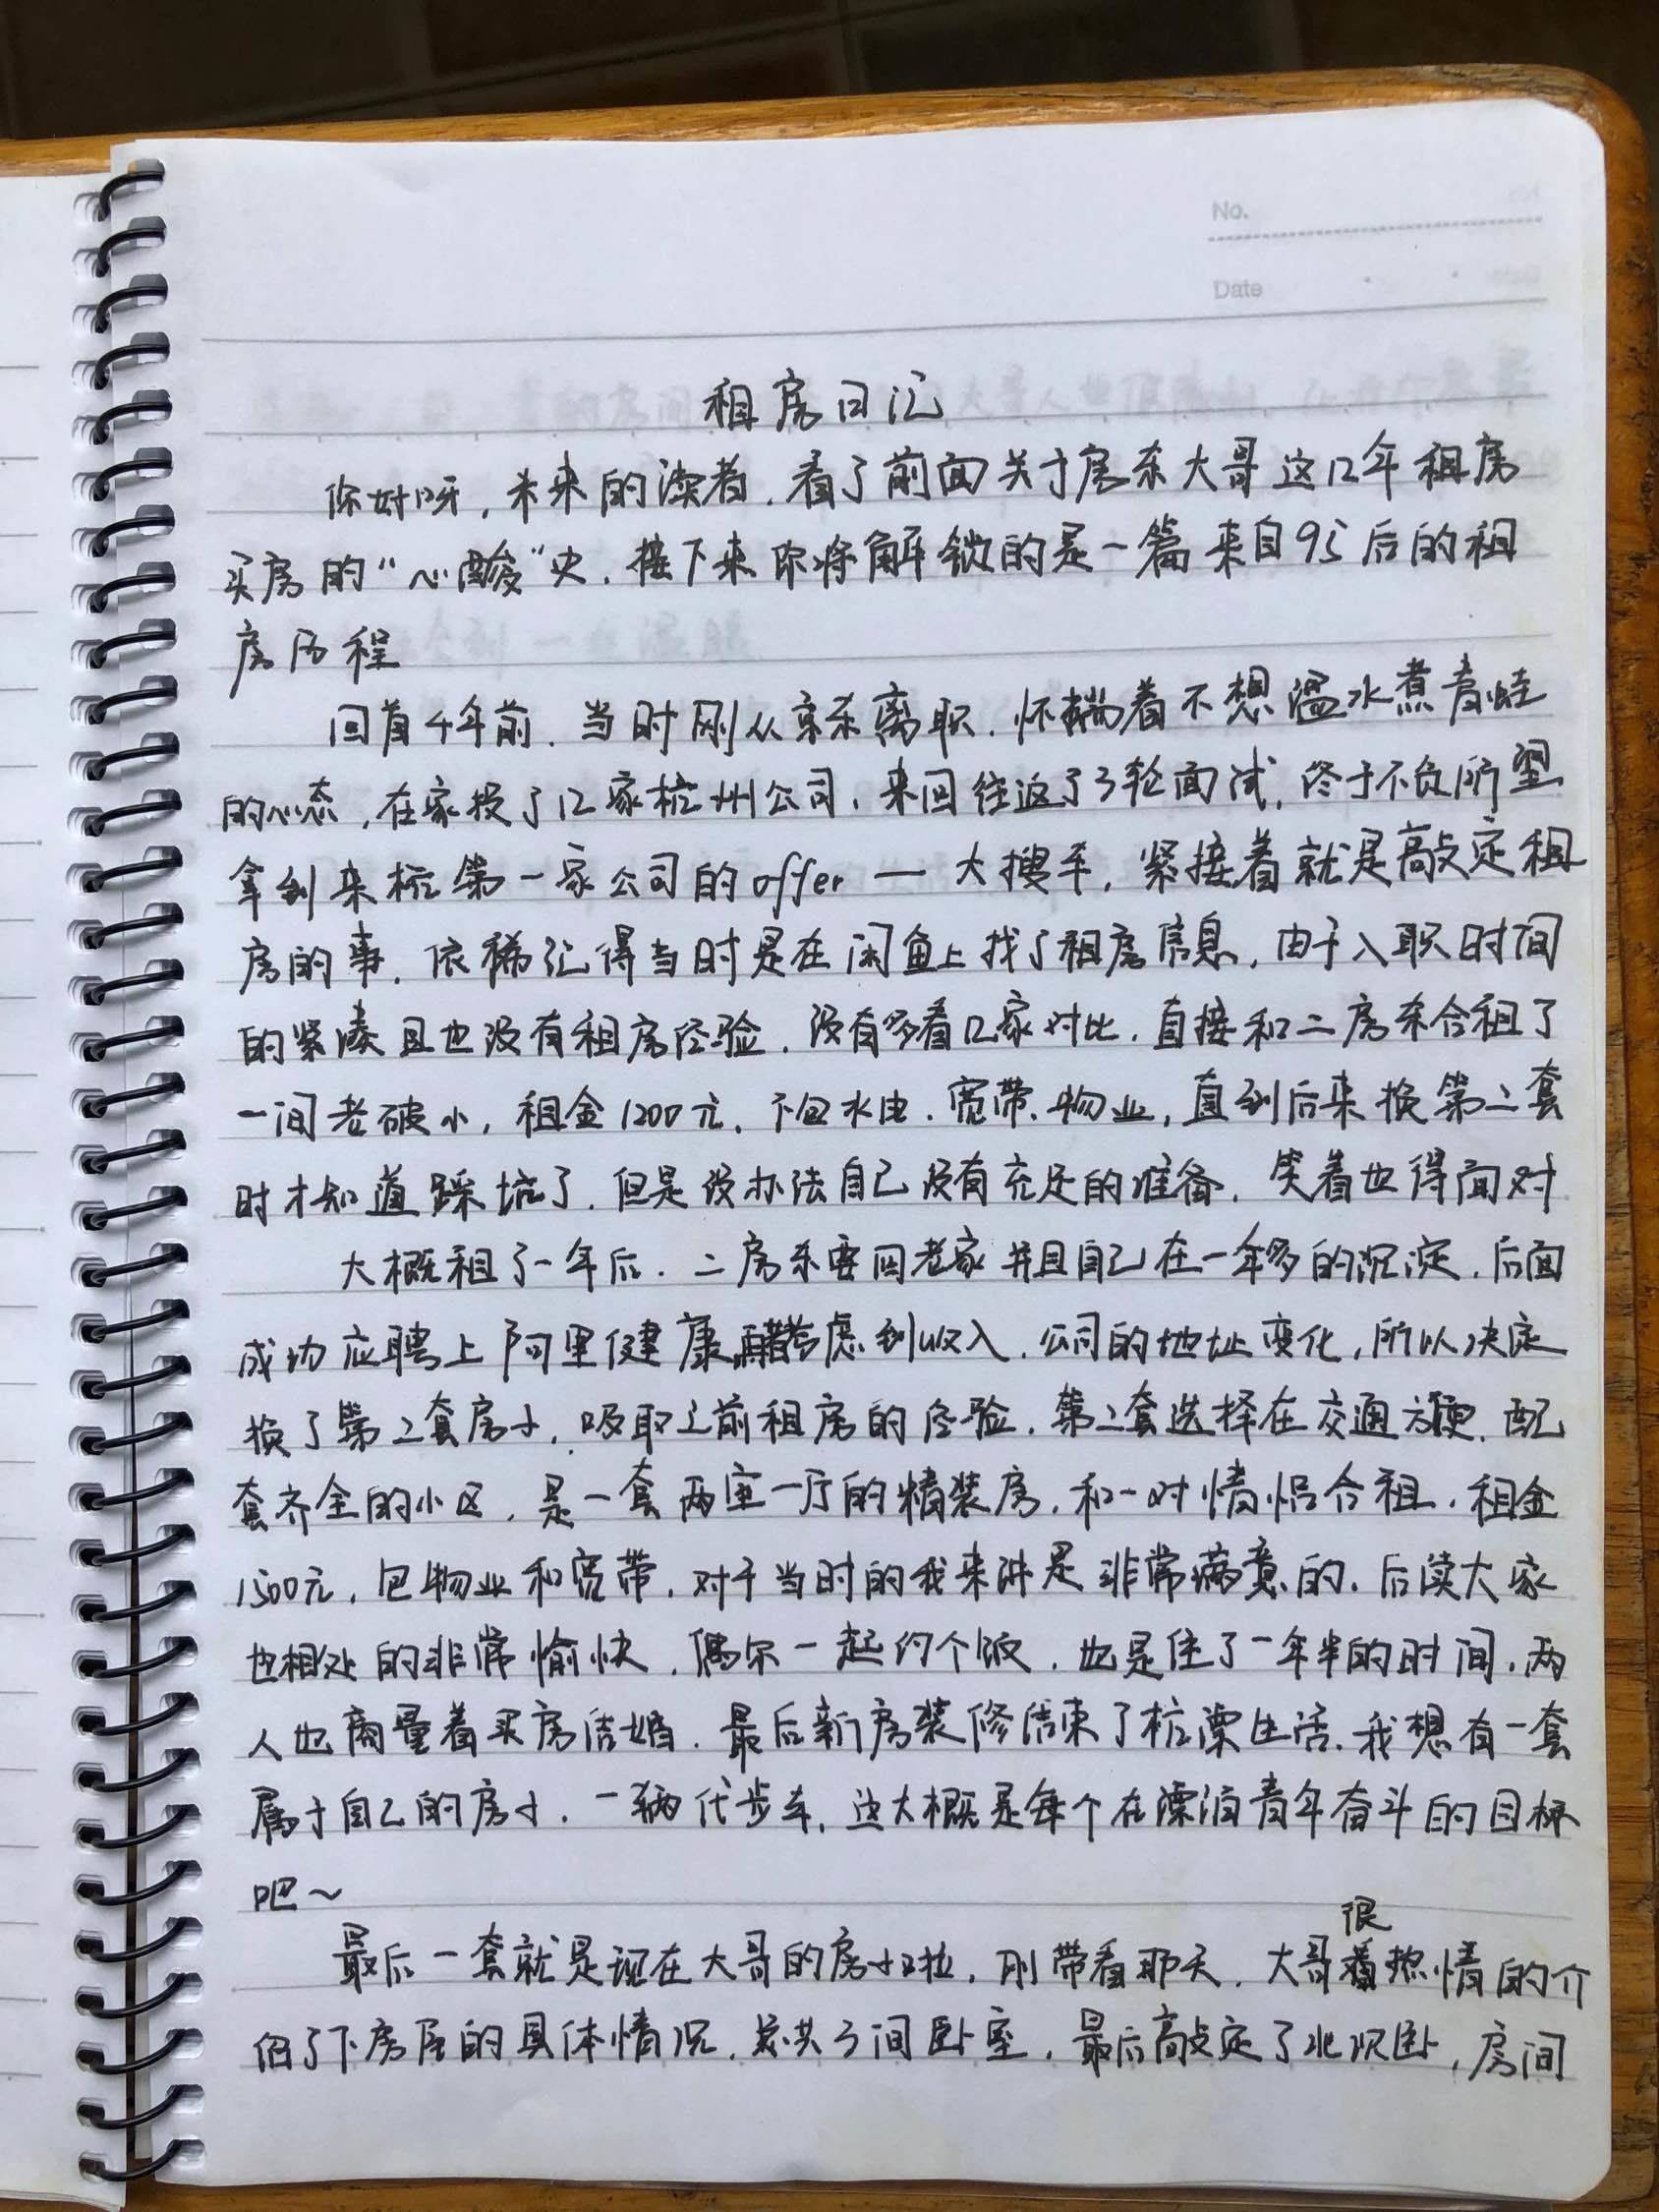 No.
Date
租房日记
你好呀,未来的读者,看了前面关于房东大哥这12年租房
买房的“心酸”史,接下来你将解锁的是一篇来自95后的租
房历程
回首4年前,当时刚从京东离职,怀揣着不想温水煮青蛙
的心态,在家投了12家杭州公司,来回往返了3轮面试,终于不负所望
拿到来杭第一家公司的offer — 大搜车,紧接着就是敲定租
房的事,依稀记得当时是在闲鱼上找了租房信息,由于入职时间
的紧凑且也没有租房经验,没有多看几家对比,直接和二房东合租了
一间老破小,租金1200元,不包水电、宽带、物业,直到后来换第二套
时才知道踩坑了,但是没办法自己没有充足的准备,笑着也得面对
大概租了一年后,二房东要回老家并且自己在一年多的沉淀,后面
成功应聘上阿里健康,考虑到收入,公司的地址变化,所以决定
换了第二套房子,吸取之前租房的经验,第二套选择在交通方便、配
套齐全的小区,是一套两室一厅的精装房,和一对情侣合租,租金
1500元,包物业和宽带,对于当时的我来讲是非常满意的,后续大家
也相处的非常愉快,偶尔一起约个饭,也是住了一年半的时间,两
人也商量着买房结婚,最后新房装修结束了杭漂生活,我想有一套
属于自己的房子,一辆代步车,这大概是每个在漂泊青年奋斗的目标
吧～
最后一套就是现在大哥的房子啦,刚带看那天,大哥很热情的介
绍了下房屋的具体情况,总共3间卧室,最后敲定了北次卧,房间